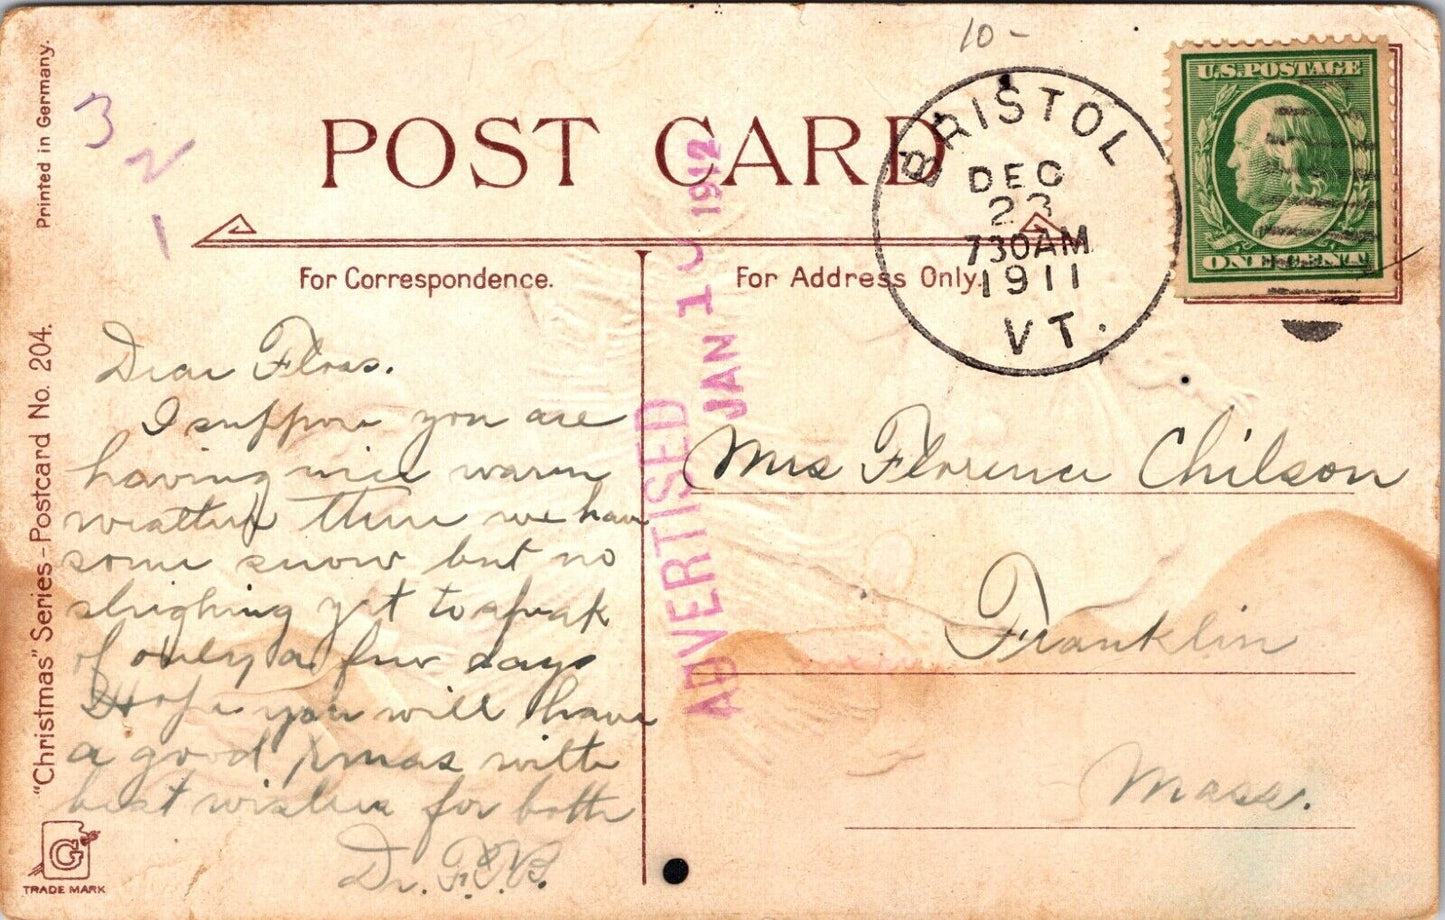 10-
Printed in Germany.
"Christmas" Series-Postcard No. 204.
G
TRADE MARK
3
2
1
POST CARD
For Correspondence.
For Address Only.
BRISTOL
DEC
23
730AM
1911
VT.
U.S. POSTAGE
ONE CENT
ADVERTISED
JAN 10 1912
Dear Floras.
I suppose you are
having nice warm
weather there we have
some snow but no
sleighing yet to speak
of only a few days
Hope you will have
a good Xmas with
best wishes for both
Dr.
Mrs Florence Chilson
Franklin
Mass.